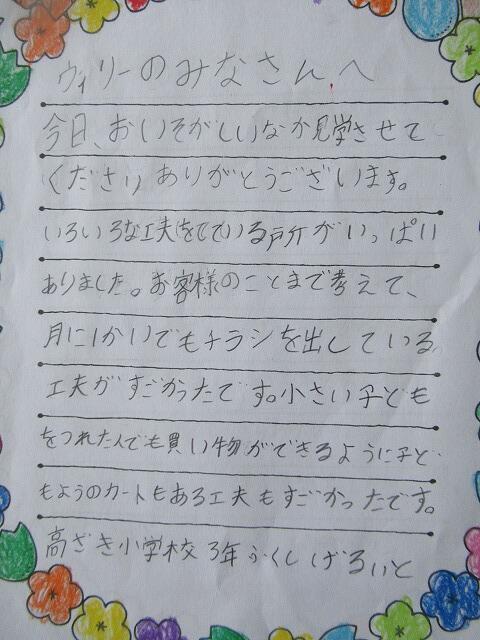 ウィリーのみなさんへ
今日、おいそがしいなか見学させて
くださりありがとうございます。
いろいろな工夫をしている所がいっぱい
ありました。お客様のことまで考えて、
月に1かいでもチラシを出している
工夫がすごかったです。小さい子ども
をつれた人でも買い物ができるように子ど
もようのカートもある工夫もすごかったです。
高ざき小学校3年